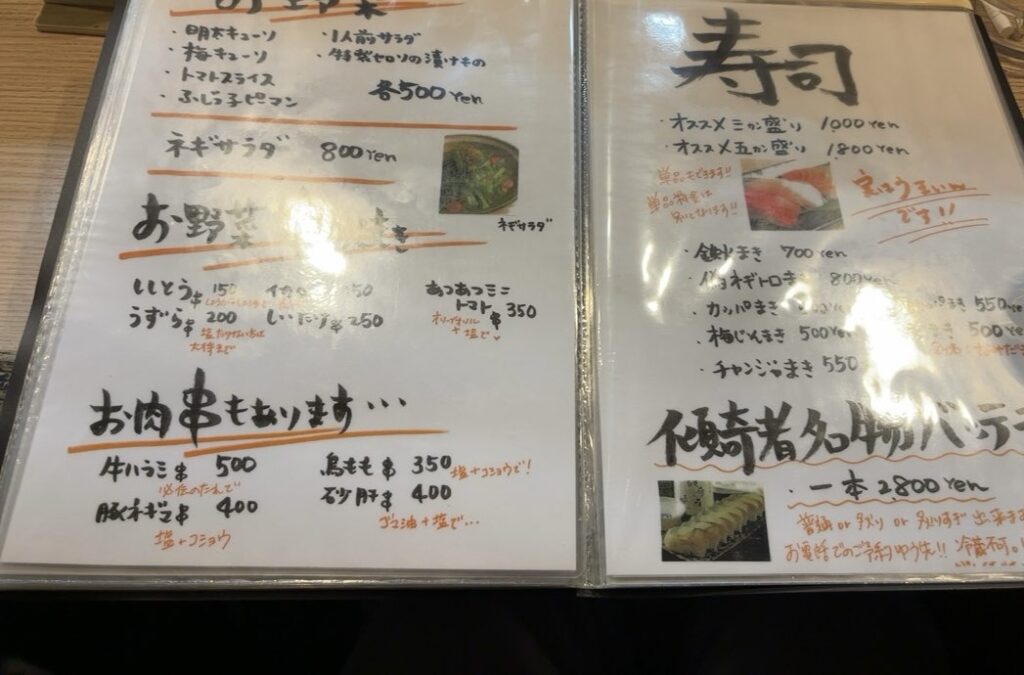 お野菜
・明太キューリ
・梅キューリ
・トマトスライス
・ふじっ子ピーマン
・1人前サラダ
・特製セロリの漬けもの
各500yen
ネギサラダ 800yen
ネギサラダ
お野菜 き
ししとう串 150
うずら串 200
塩
大将まで
50
しいたけ串 250
あつあつミニ
トマト串 350
オリーブオイル
+塩で
お肉串もあります・・・
牛ハラミ串 500
秘伝のたれで
豚ネギマ串 400
塩+コショウ
鳥もも串 350 塩+コショウで!
砂肝串 400
ゴマ油+塩で…
寿司
・オススメ三カン盛り 1000yen
・オススメ五カン盛り 1800yen
単品もできます!!
単品料金は
別になります!!
実はうまいんです!!
・鉄火まき 700yen
ネギトロまき 800yen
・カッパまき
・梅じそまき 500yen
・チャンジャまき 550
まき 550ye
き 500ye
傾奇者名物バッテラ
・一本2800yen
普通or炙りor炙りすぎ 出来ま
お電話でのご予約ゆう先!! 冷蔵不可。